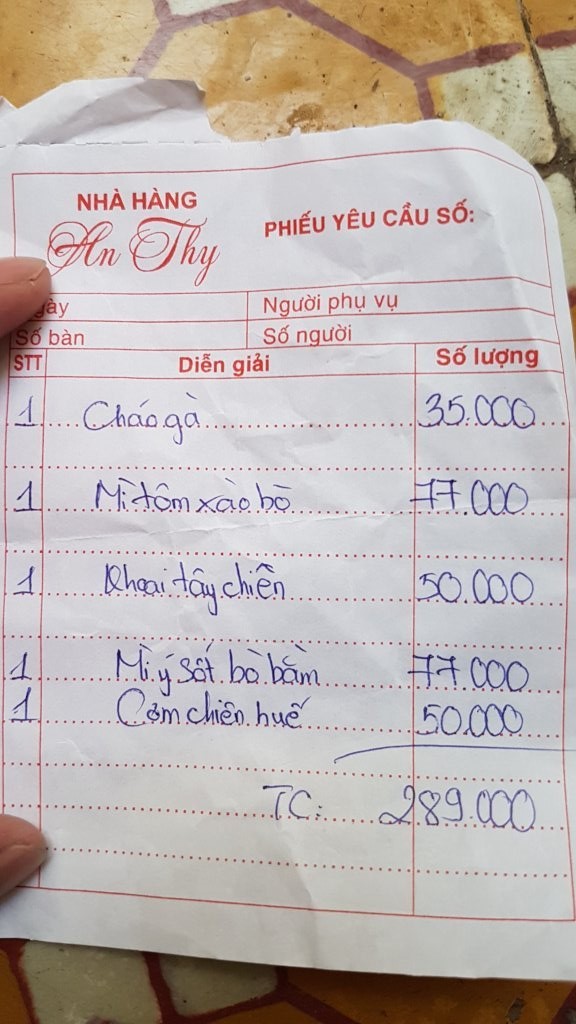 NHÀ HÀNG
An Thy
PHIẾU YÊU CẦU SỐ:
gày Người phụ vụ
Số bàn Số người
STT Diễn giải Số lượng
1 Cháo gà 35.000
1 Mì tôm xào bò 77.000
1 Khoai tây chiên 50.000
1 Mì ý sốt bò bằm 77.000
1 Cơm chiên huế 50.000
TC: 289.000